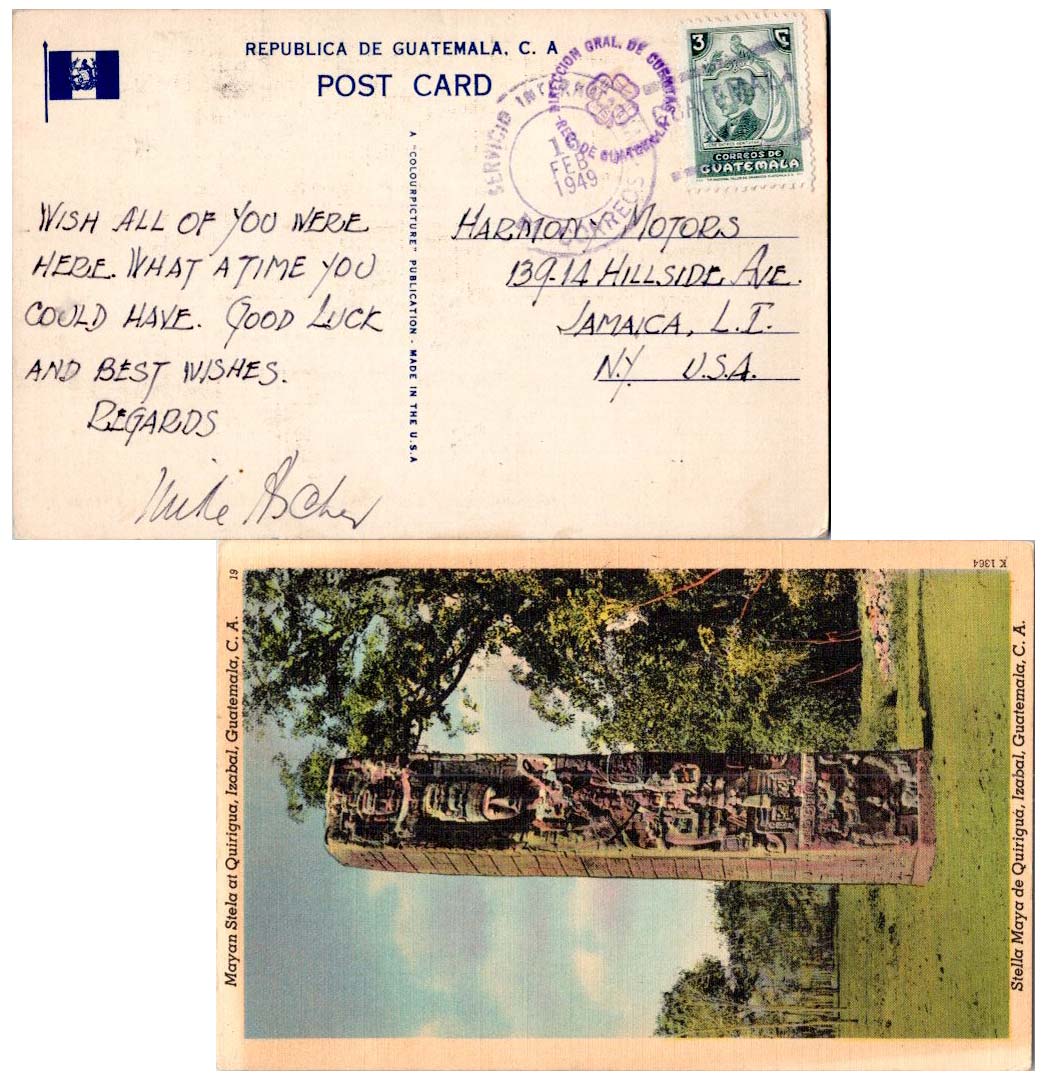 REPUBLICA DE GUATEMALA, C. A
POST CARD
SERVICIO
CORREOS
FEB
1949
DIRECCION GRAL. DE CUENTAS
3
CORREOS DE
GUATEMALA
A "COLOURPICTURE" PUBLICATION - MADE IN THE U.S.A
WISH ALL OF YOU WERE
HERE. WHAT A TIME YOU
COULD HAVE. GOOD LUCK
AND BEST WISHES.
REGARDS
Mike Ascher
HARMONY MOTORS
139-14 HILLSIDE AVE.
JAMAICA, L.I.
N.Y. U.S.A.
19
K 1364
Mayan Stela at Quirigua, Izabal, Guatemala, C. A.
Stella Maya de Quiriguá, Izabal, Guatemala, C. A.